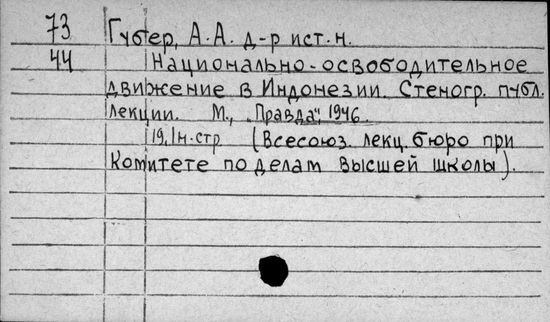 73 Губер, А.А. д-р ист.н.
44 Национально-освободительное
движение в Индонезии. Стеногр. публ.
лекции. М., "Правда", 1946.
19, 1н.стр (Всесоюз. лекц. бюро при
Комитете по делам высшей школы).